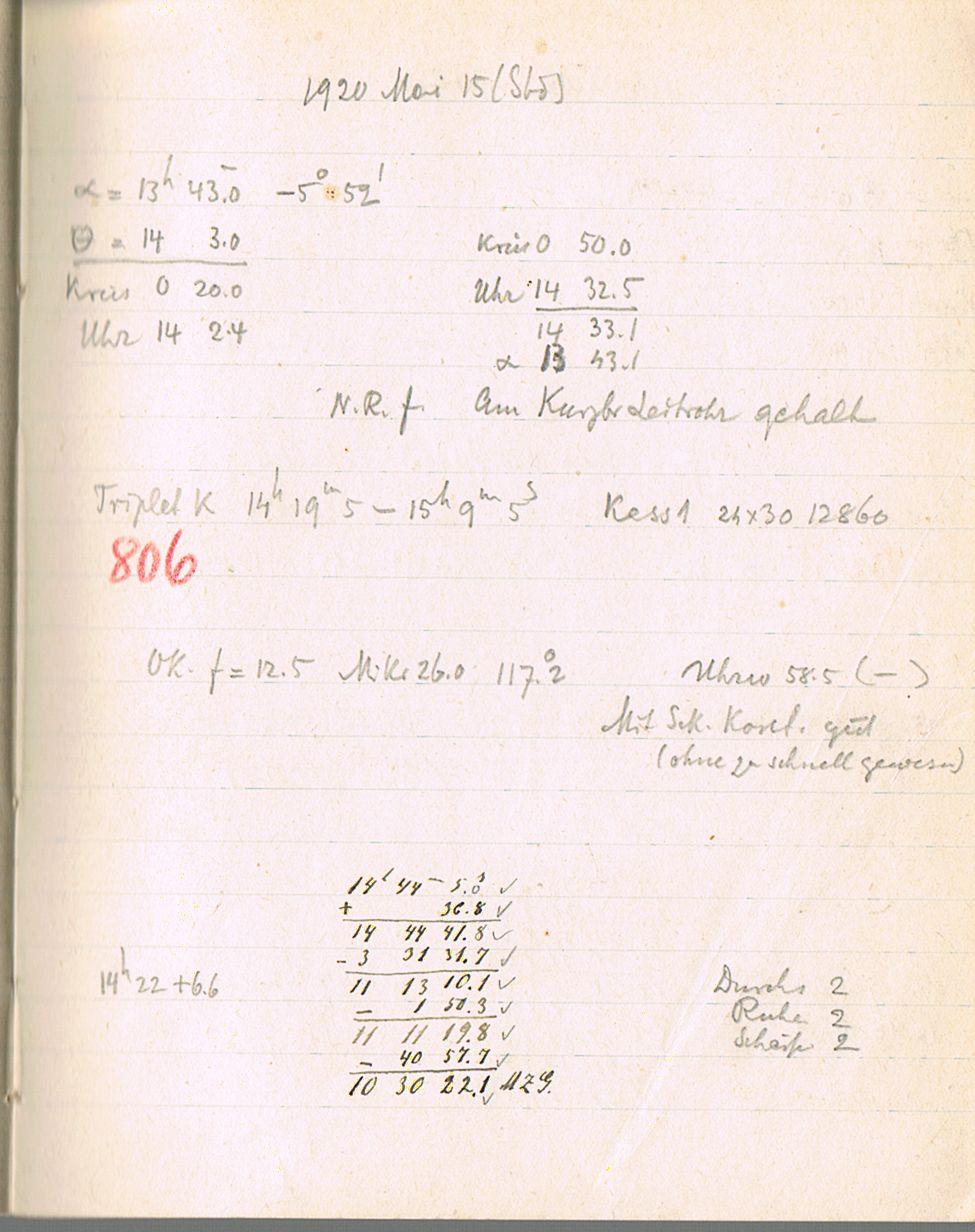 1920 Mai 15 (Sbd)
α = 13h 43.0 -5° 52'
θ = 14 3.0
Kreis 0 20.0
Uhr 14 2.4
Kreis 0 50.0
Uhr 14 32.5
14 33.1
α 13 43.1
N.R. f. Am Kurzbr Leitrohr gehalt
Triplet K 14h 19m 5 - 15h 9m 5s Kass 1 24x30 12860
806
OK. f = 12.5 Mikr 26.0 117.°2 Uhrw 58.5 (-)
Mit Sek. Kontr. gut
(ohne zu schnell gewesen)
14h 44m 5.s0 ✓
+ 36.8 ✓
14 44 41.8 ✓
- 3 31 31.7 ✓
14h 22 +6.6 11 13 10.1 ✓
- 1 50.3 ✓
11 11 19.8 ✓
- 40 57.7 ✓
10 30 22.1 ✓ MZG.
Durchs 2
Ruhe 2
Schärfe 2